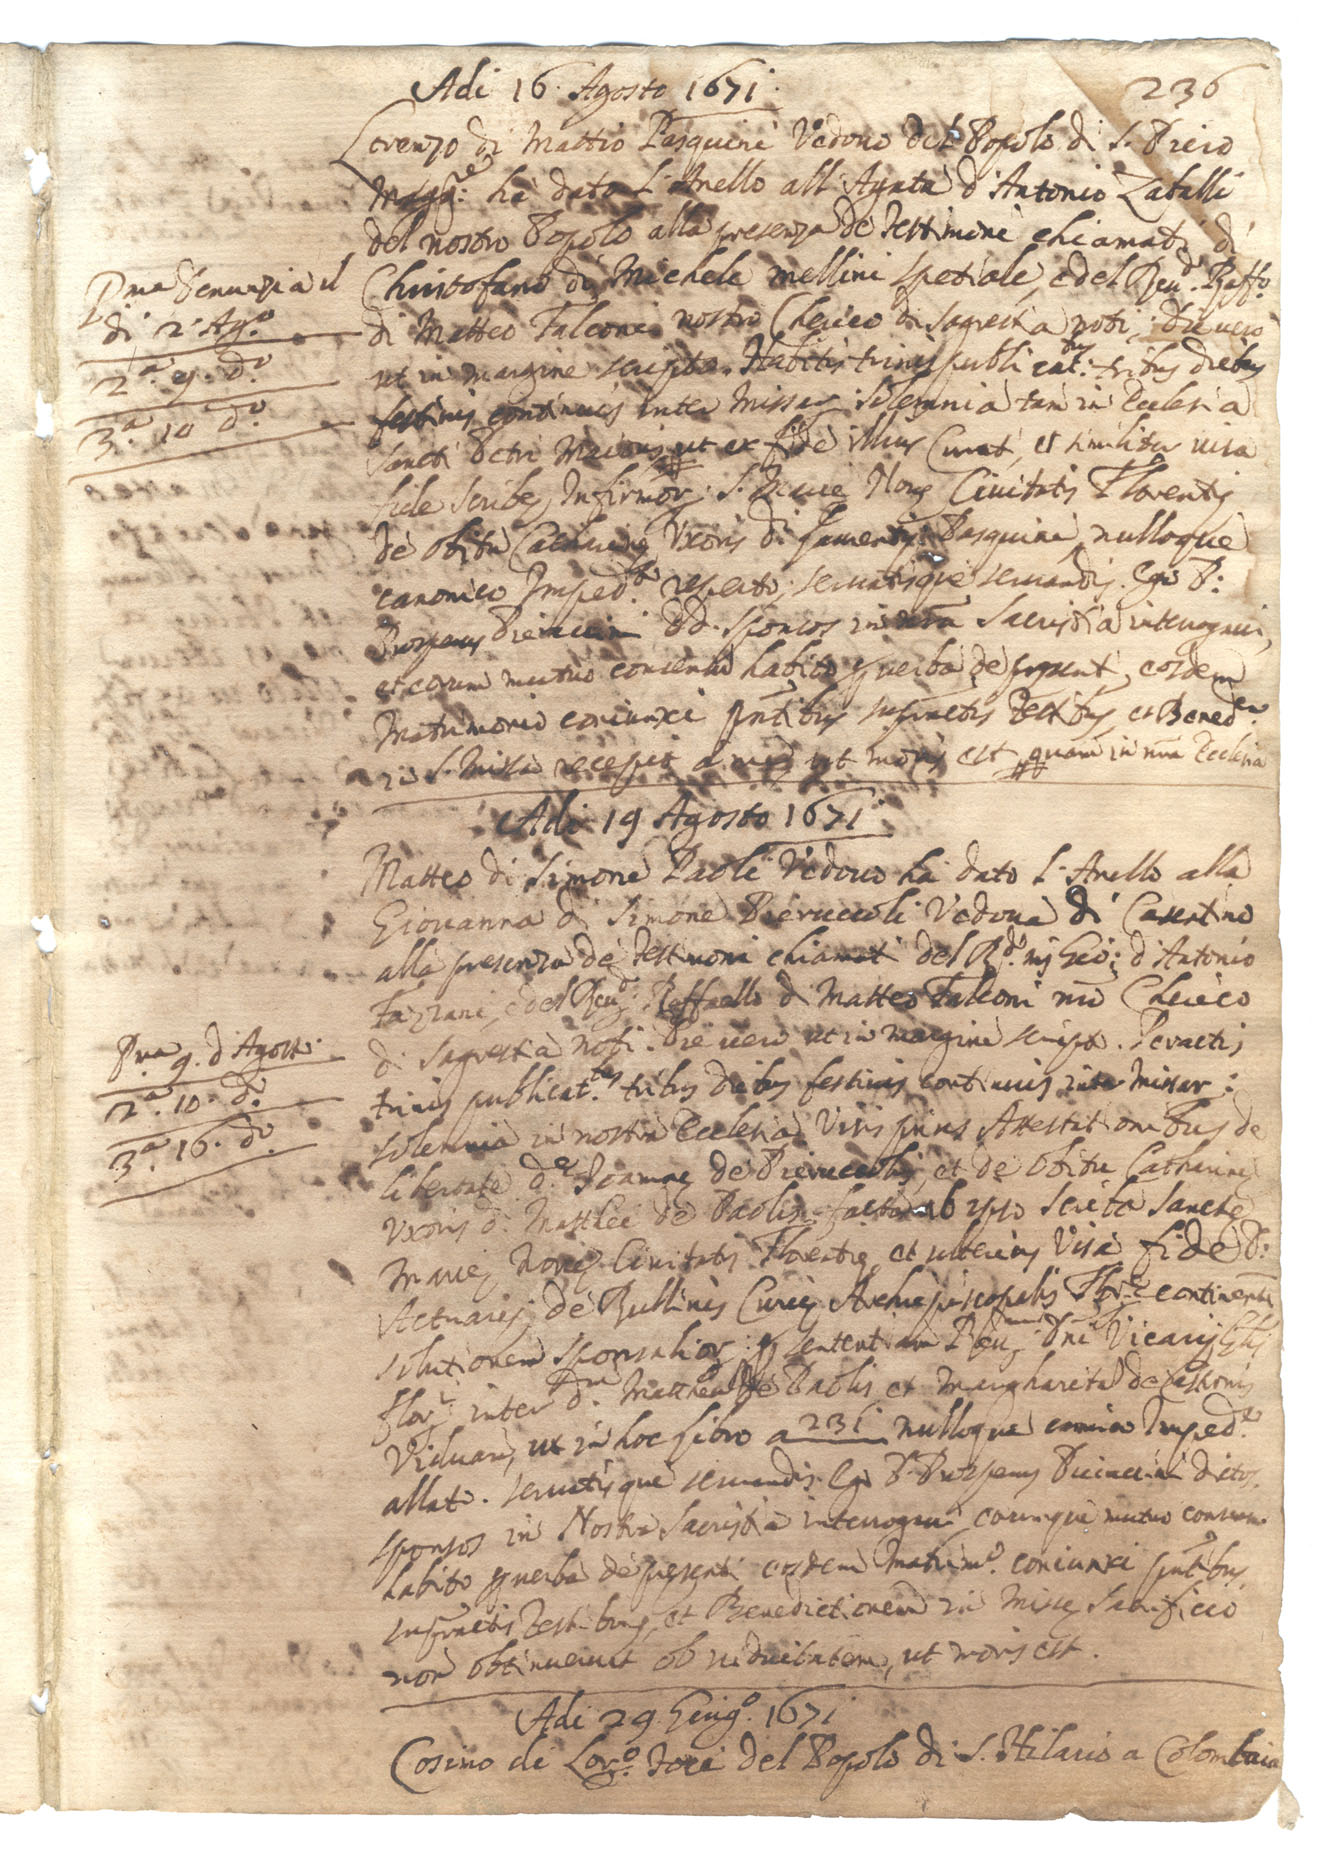 Adi 16 Agosto 1671.
236
Lorenzo di Mattio Pasquini Vedovo del Popolo di S. Piero
Magg.re ha dato l'Anello all'Agata d'Antonio Zaballi
del nostro Popolo alla presenza de Testimoni chiamati di
Christofano di Michele mellini spetiale, e del Reu.do Raff.o
di Matteo Falconi nostro Cherico di Sagrestia noti; die vero
ut in margine scripto. Habitis trinis publicat.bus tribus diebus
festiuis continuis inter Missar. solemnia tam in Ecclesia
Sancti Petri Maioris ut ex fide illius Curati, et similiter visa
fide scribe Infirmor. S. Marie Noue Ciuitatis Florentie
de obitu Catharine Vxoris d. Laurentij Pasquini, nulloque
canonico Imped.to reperto, seruatisque seruandis. Ego P.
Prosperus Pieraccini dd. sponsos in nrã Sacristia interrogaui,
et eorum mutuo consensu habito p verba de present, eosdem
Matrimonio coniunxi pñtibus infractis Testibus et Bened.em
in S. Missa recepit a me ut moris est quam in nrã Ecclesia
Adi 19 Agosto 1671.
Matteo di Simone Paoli Vedouo ha dato l'Anello alla
Giouanna di Simone Pieruccioli Vedoua di Casentino
alla presenza de Testimoni chiamati del R.do mj Gio: d'Antonio
e del Reu.do Raffaello di Matteo Falconi nrõ Cherico
di Sagrestia noti. Die uero ut in margine script. Peractis
trinis publicat.bus tribus diebus festiuis continuis inter Missar:
solemnia in nostra Ecclesia Visis prius Attestationibus de
libertate d.e Joanne de Pieruccolis, et de obitu Catharine
Vxoris d. Matthei de Paolis facta ab ipso Scriba Sancte
Marie Noue Ciuitatis Florentie, et ulterius Visa fide D.
Actuarij de Rullinis Curie Archiepiscopalis Flor.e continente
solutionem sponsalior. p sententiam Reu.mi Dni Vicarij Glis
Flor. inter d.um Mattheum de Paolis et Margharita de
Viduam, ut in hoc libro a 231 nulloque canonico Imped.to
allato. seruatisque seruandis. Ego P. Prosperus Pieraccini dictos
sponsos in Nostra Sacristia interrogaui, eorumque mutuo consensu
habito p verba de presenti eosdem Matrim.o coniunxi pñtibus
infractis Testibus, et Benedictionem in Misse Sacrificio
non obtinuerunt ob viduitatem, ut moris est.
Adi 29 Giug.o 1671
Cosimo di Lor.o del Popolo di S. Hilario a Colombaia
Pma Denunzia il
di 2 Ag.o
2.a 9. d.o
3.a 10 d.o
P.ma 9. d'Agosto.
2.a 10. d.o
3.a 16. d.o